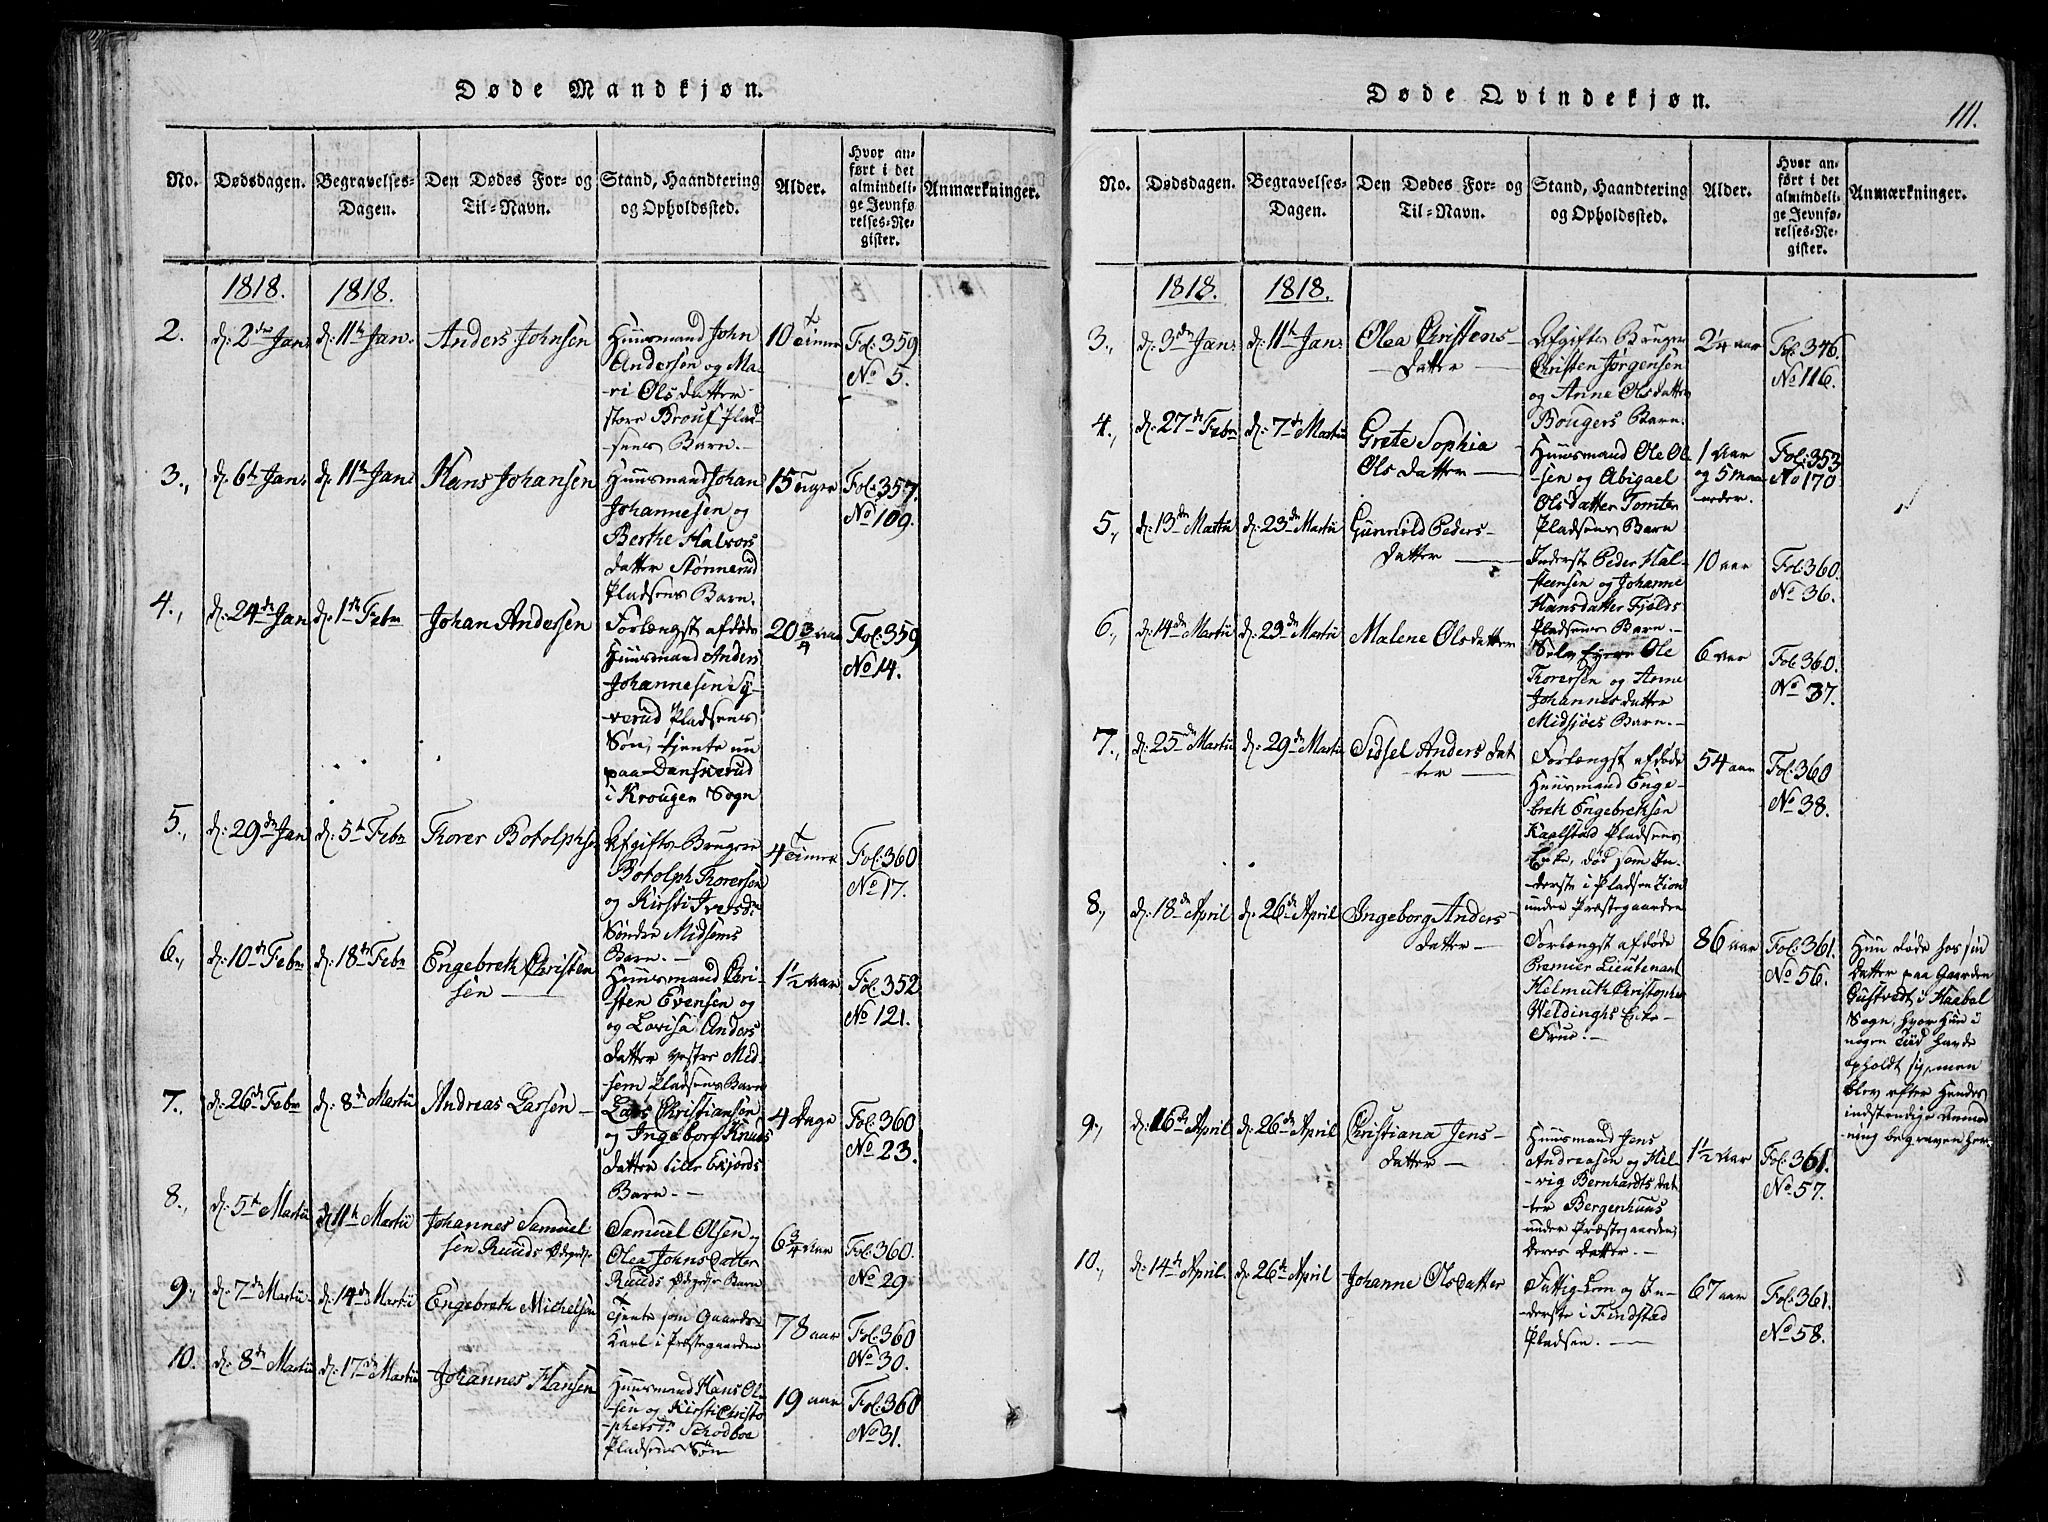 Døde Mandkjøn.
No.
Dødsdagen.
Begravelses-
Dagen.
Den Dødes For- og
Til-Navn.
Stand, Haandtering
og Opholdssted.
Alder.
Hvor an-
ført i det
almindeli-
ge Jevnfø-
relses-Re-
gister.
Anmærkninger.
1818.
1818.
2.
d: 2den Jan:
d: 11th Jan:
Anders Johnsen
Huusmand John
Andersen og Ma-
ri Olsdatter
store Brouf Plad-
sens Barn.
10 Timer
Fol: 359
No 5.
3.,
d: 6th Jan:
d: 11th Jan:
Hans Johansen
Huusmand Johan
Johannesen og
Berthe Halvors
datter Stonnerud
Pladsens Barn.
15 Uger
Fol: 357.
No 109.
4.,
d: 24de Jan
d: 1ste Febr
Johan Andersen
Forlængst afdøde
Huusmand Anders
Johannesen Sy-
verud Pladsens
Søn, tjente nu
paa Danskerud
i Krougen Sogn
20 3/4 aar
Fol: 359
No 14.
5.,
d: 29de Jan
d: 5th Febr
Thorer Botolphsen
Afgifts-Bruger
Botolph Thorersen
og Kirsti Iversd:
Søndre Midsems
Barn.
4 Timer
Fol: 360
No 17.
6.,
d: 10de Febr
d: 18de Febr
Engebreth Christen
sen
Huusmand Chri-
sten Evensen og
og Lovisa Anders
datter vestre Mid-
sem Pladsens Barn
1 1/2 aar
Fol: 352
No 121.
7.,
d: 26de Febr
d: 8de Martii
Andreas Larsen
Lars Christiansen
og Ingeborg Knuds
datter lille Eskjords
Barn.
4 Dage
Fol: 360
No 23.
8.,
d: 5te Martii
d: 11th Martii
Johannes Samuel
sen Ruuds Ødegds:
Samuel Olsen
Olea Johnsdatter
Ruuds Ødegds: Barn
6 3/4 aar
Fol: 360.
No 29.
9.,
d: 7de Martii
d: 14de Martii
Engebreth Michelsen
Tjente som Gaards-
Karl i Præstegaarden
78 aar
Fol: 360
No 30.
10.
d: 8de Martii
d: 17de Martii
Johannes Hansen
Huusmand Hans Ol-
sen og Kirsti Christo-
phersdr:
Pladsens Søn
19 aar
Fol: 360
No 31.
Døde Qvindekjøn.
111.
No.
Dødsdagen.
Begravelses-
Dagen.
Den Dødes For- og
Til-Navn.
Stand, Haandtering
og Opholdssted.
Alder.
Hvor an-
ført i det
almindeli-
ge Jevnfø-
relses-Re-
gister.
Anmærkninger.
1818.
1818.
3.,
d: 3de Jan:
d: 11th Jan:
Olea Christens-
datter
Afgifts Bruger
Christen Jørgensen
og Anne Olsdatter
Bougers Barn.
2 1/4 aar
Fol: 346.
No 116.
4.,
d: 27de Febr
d: 7de Martii
Grete Sophia
Olsdatter
Huusmand Ole Ol-
sen og Abigael
Olsdatter Tomter
Pladsens Barn
1 Aar
og 5 Maa
neder.
Fol: 353
No 170
5.,
d: 13de Martii
d: 23de Martii
Gunnild Peders-
datter
Inderste Peder Hal-
steensen og Johanne
Hansdatter Fjelds
Pladsens Barn.
10 aar
Fol: 360.
No 36.
6.,
d: 14de Martii
d: 23de Martii
Malene Olsdatter
Selv Eyere Ole
Thorersen og Anne
Johannesdatter
Midsjøes Barn.
6 aar
Fol: 360.
No 37.
7.,
d: 25de Martii
d: 29de Martii
Sidsel Andersdat
ter
Forlængst afdøde
Huusmand Enge-
breth Engebrethsen
Kaalstad Pladsens
Enke, død som In-
derste i Pladsen Zion
under Præstegaarden
54 aar
Fol: 360
No 38.
8.,
d: 18de April
d: 26de April
Ingeborg Anders-
datter
Forlængst afdøde
Premier Lieutenant
Helmuth Christopher
Weldinghs Enke-
Frue.
86 aar
Fol: 361.
No 56.
Hun døde hos sin
Datter paa Gaarden
Gustvedt i Haabøl
Sogn, hvor Hun i
nogen Tiid havde
opholdt sig, men
blev efter Hendes
indstendige Anmod
ning begraven her.
9.,
d: 16de April
d: 26de April
Christiana Jens-
datter
Huusmand Jens
Andreasen og Hel-
vig Bernhardtsdat
ter Bergenhuus
under Præstegaarden,
deres datter.
1 1/2 aar
Fol: 361.
No 57.
10.,
d: 14th April.
d: 26th April
Johanne Olsdatter
Fattig-Lem og In-
derste i Findstad
Pladsen.
67 aar
Fol: 361.
No 58.